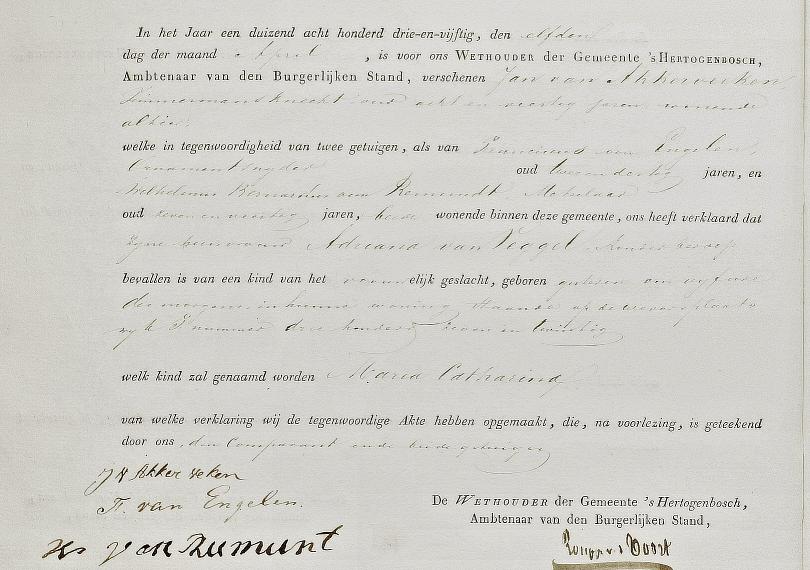 In het Jaar een duizend acht honderd drie-en-vijftig, den elfden
dag der maand April , is voor ons WETHOUDER der Gemeente 's HERTOGENBOSCH,
Ambtenaar van den Burgerlijken Stand, verschenen Jan van Akkerveeken
timmermansknecht oud acht en veertig jaren wonende
alhier
welke in tegenwoordigheid van twee getuigen, als van Franciscus van Engelen,
Ornamentsnyder oud twee en dertig jaren, en
Wilhelmus Bernardus van Remundt, Makelaar
oud zeven en veertig jaren, beide wonende binnen deze gemeente, ons heeft verklaard dat
zyne huisvrouw Adriana van Veggel zonder beroep
bevallen is van een kind van het vrouwelijk geslacht, geboren gisteren om vyf ure
des morgens, in hunne woning staande op de
wyk F nummer drie honderd zeven en twintig
welk kind zal genaamd worden Maria Catharina
van welke verklaring wij de tegenwoordige Akte hebben opgemaakt, die, na voorlezing, is geteekend
door ons, den Comparant ende beide getuigen
J V Akkerveken
F. van Engelen.
De WETHOUDER der Gemeente 's Hertogenbosch,
Ambtenaar van den Burgerlijken Stand,
van Remunt